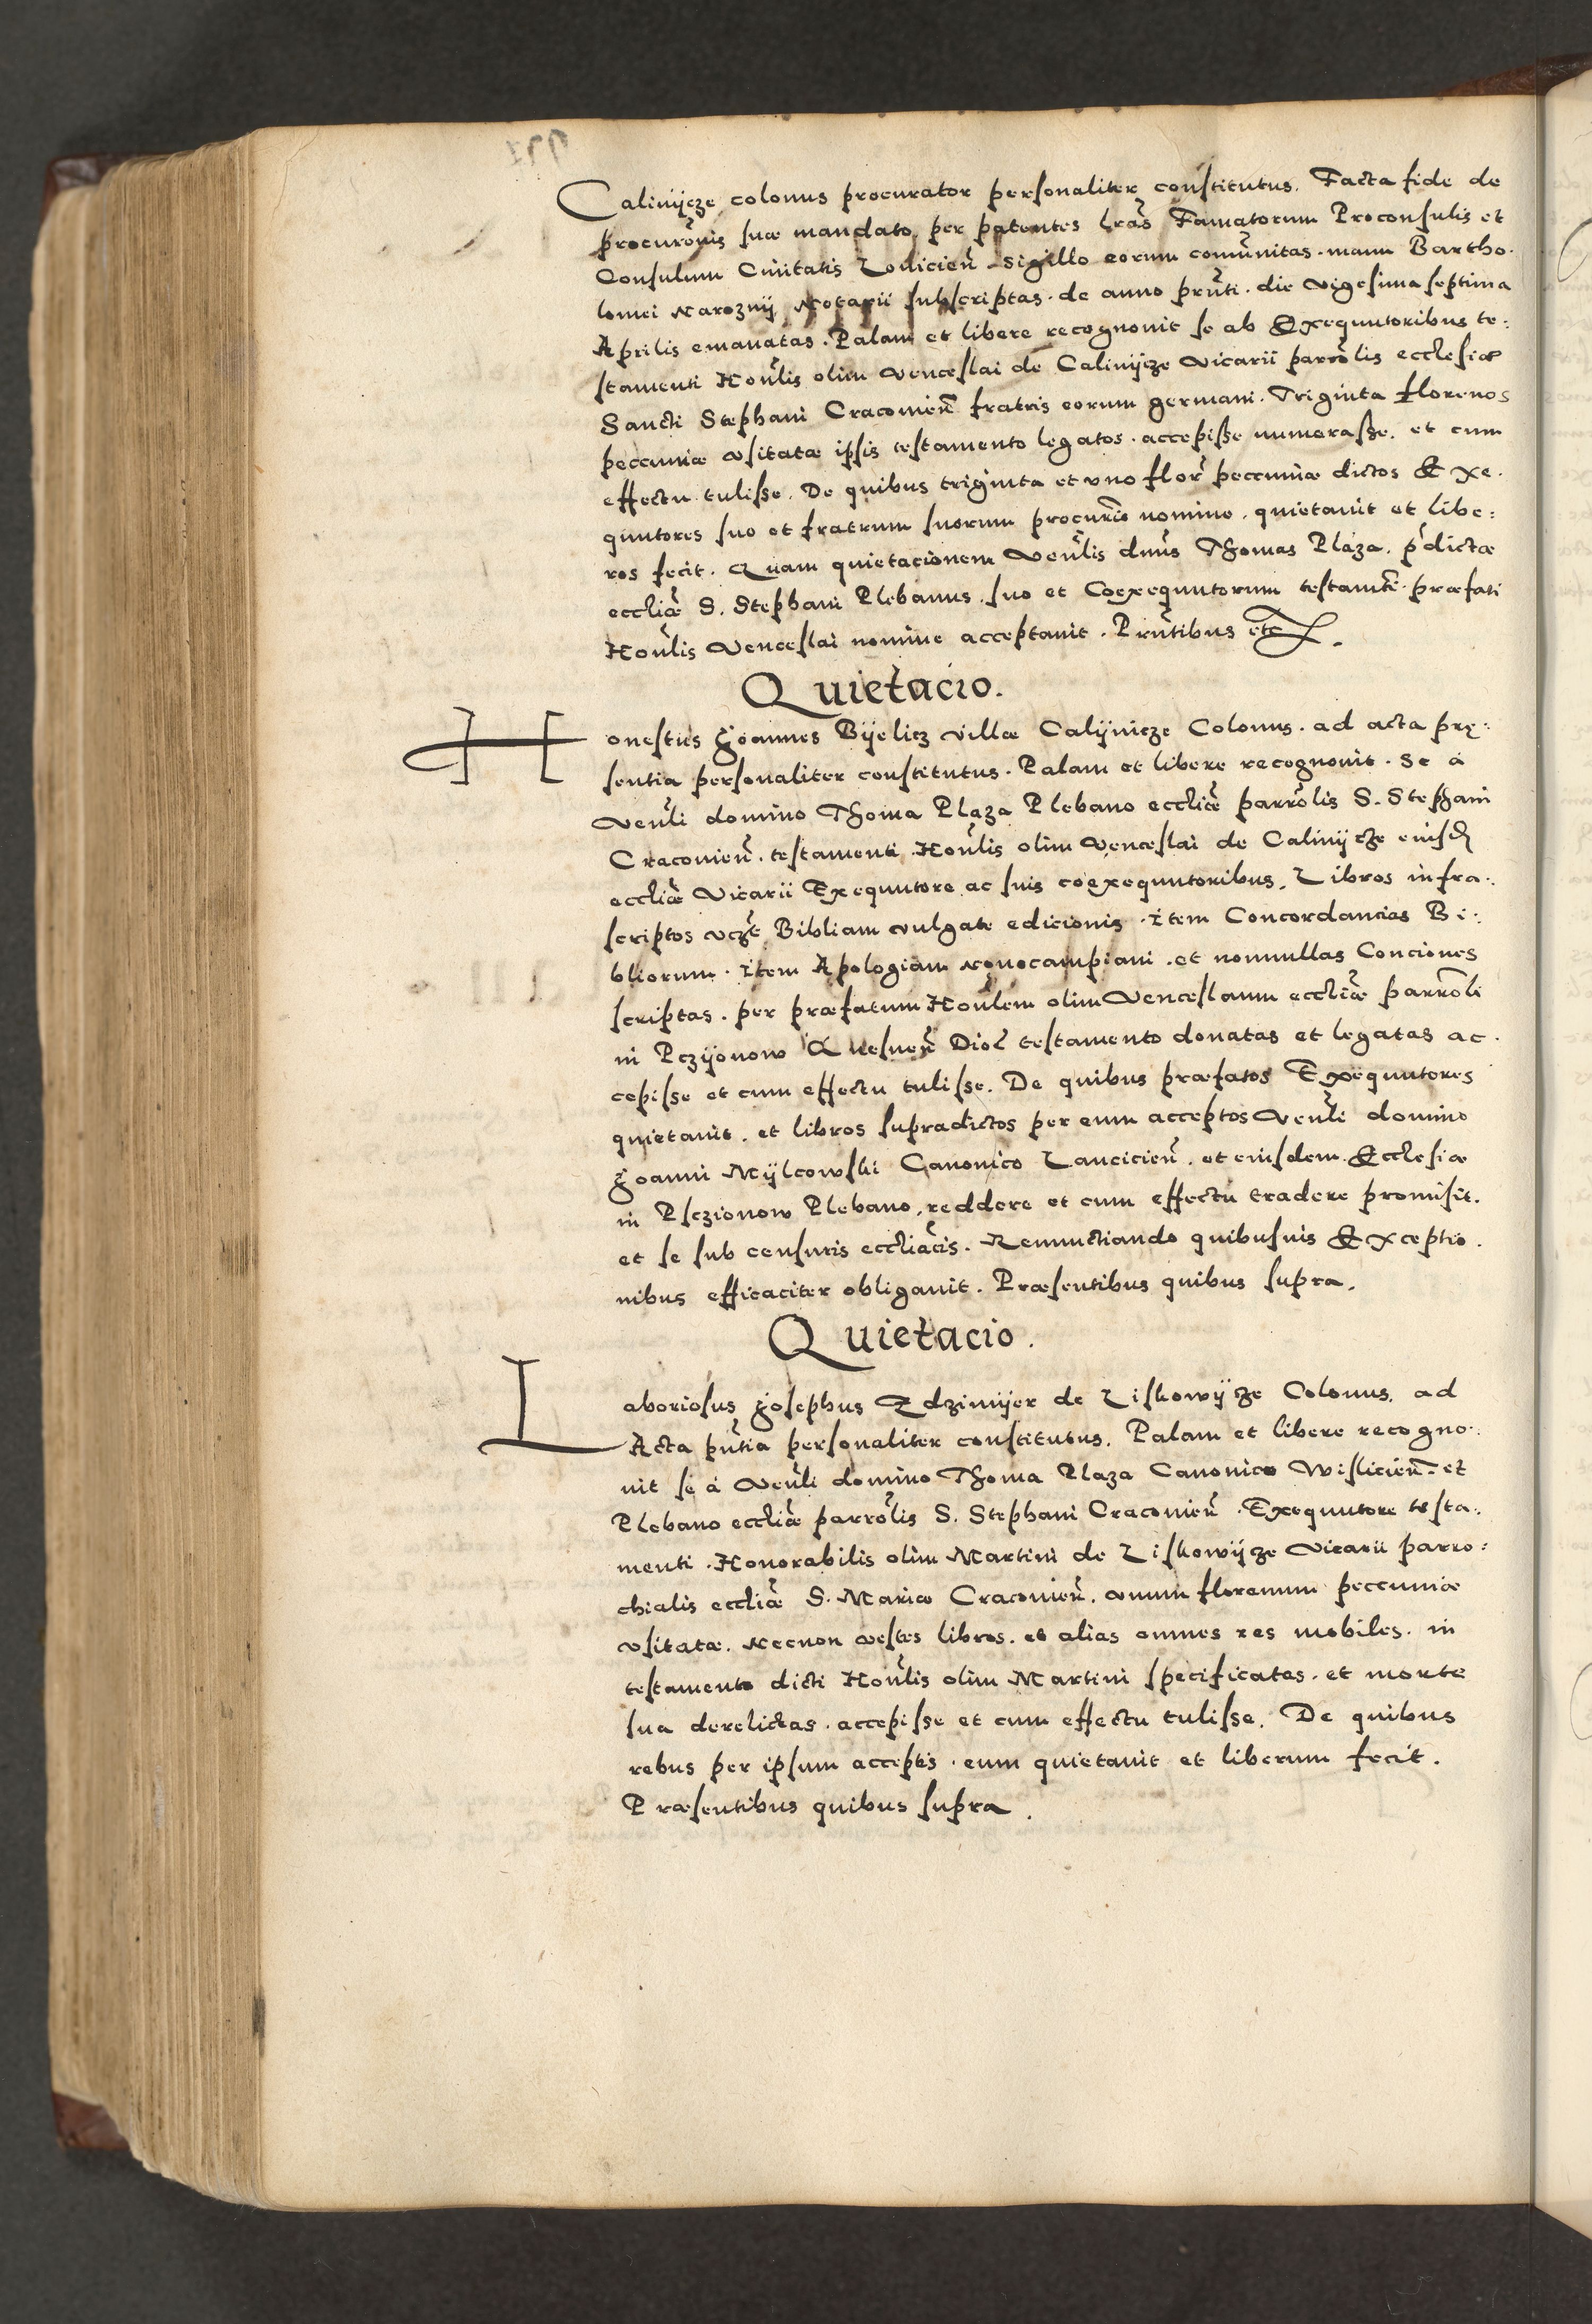 Calinijcze colonus procurator personaliter constitutus. Facta fide de
procurõnis suæ mandato, per patentes lrãs Famatorum Proconsulis et
Consulum Ciuitatis Louicieñ. Sigillo eorum comũnitas. manu Bartho.
lomei Naroznij Notarii subscriptas. de anno prñti. die vigesima septima
Aprilis emanatas. Palam et libere recognouit se ab Exequutoribus te:
stamenti Hoñlis olim Venceslai de Calinijcze Vicarii parrõlis ecclesiæ
Sancti Stephani Cracouieñ fratris eorum germani. Triginta florenos
peccuniæ vsitatæ ipsis testamento legatos. accepisse numerasse. et cum
effectu tulisse. De quibus triginta et vno flor̃ peccuniæ dictos Exe.
quutores suo et fratrum suorum procurio nomine. quietauit et libe:
ros fecit. Quam quietacionem Veñlis dnũs Thomas Plaza. p̃dictæ
ecclĩæ S. Stephani Plebanus. suo et Coexequutorum testamti. præfati
Hoñlis Venceslai nomine acceptauit. Prñtibus etc.
Quietacio.
Honestus Joannes Bijelicz villæ Calijnicze Colonus. ad acta prę:
sentia personaliter constitutus. Palam et libere recognouit. Se à
Veñli domino Thoma Plaza Plebano ecclĩæ parrõlis S. Stephani
Cracouieñ. testamenti Hoñlis olim Venceslai de Calinijcze eiusd
ecclĩæ Vicarii Exequutore ac suis coexequutoribus, Libros infra.
scriptos vcz̃t Bibliam vulgate edicionis. Item Concordancias Bi:
bliorum. Item Apologiam Nouocampiani. et nonnullas Conciones
scriptas. per præfatum Hoñlem olim Venceslaum ecclĩæ parrõli
in Pczijonow Gnesneñ Dioc̃ testamento donatas et legatas ac.
cepisse et cum effectu tulisse. De quibus præfatos Exequutores
quietauit. et libros supradictos per eum acceptos Veñli domino
Joanni Mijlcowski Canonico Lancicieñ. et eiusdem Ecclesiæ
in Psczionow Plebano, reddere et cum effectu tradere promisit.
et se sub censuris ecclĩacis. Renunctiando quibusuis Exceptio.
nibus efficaciter obligauit. Præsentibus quibus supra.
Quietacio.
Laboriosus Josephus Zdzimijer de Liskowijcze Colonus. ad
Acta pñtia personaliter constitutus. Palam et libere recogno:
uit se à Veñli domino Thoma Plaza Canonico Wislicieñ. et
Plebano ecclĩæ parrõlis S. Stephani Cracouieñ. Exequutore testa.
menti. Honorabilis olim Martini de Liskowijcze Vicarii parro:
chialis ecclĩæ S. Mariæ Cracouieñ. vnum florenum peccuniæ
vsitatæ. Necnon vestes libros. et alias omnes res mobiles. in
testamento dicti Hoñlis olim Martini specificatas. et morte
sua derelictas. accepisse et cum effectu tulisse. De quibus
rebus per ipsum acceptis. eum quietauit et liberum fecit.
Præsentibus quibus supra.